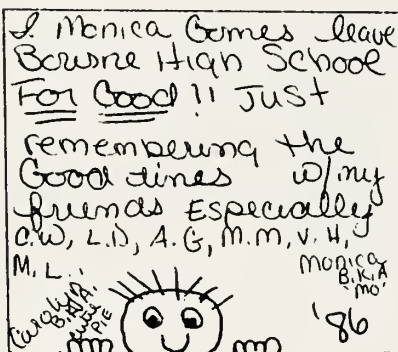 I Monica Gomes leave
Bourne High School
For Good!! Just
remembering the
Good times w/my
friends Especially
C.W, L.D, A.G, M.M, V.H,
M.L..
Monica
B.K.A
"MO"
'86
Carolyn
B.K.A.
PIE